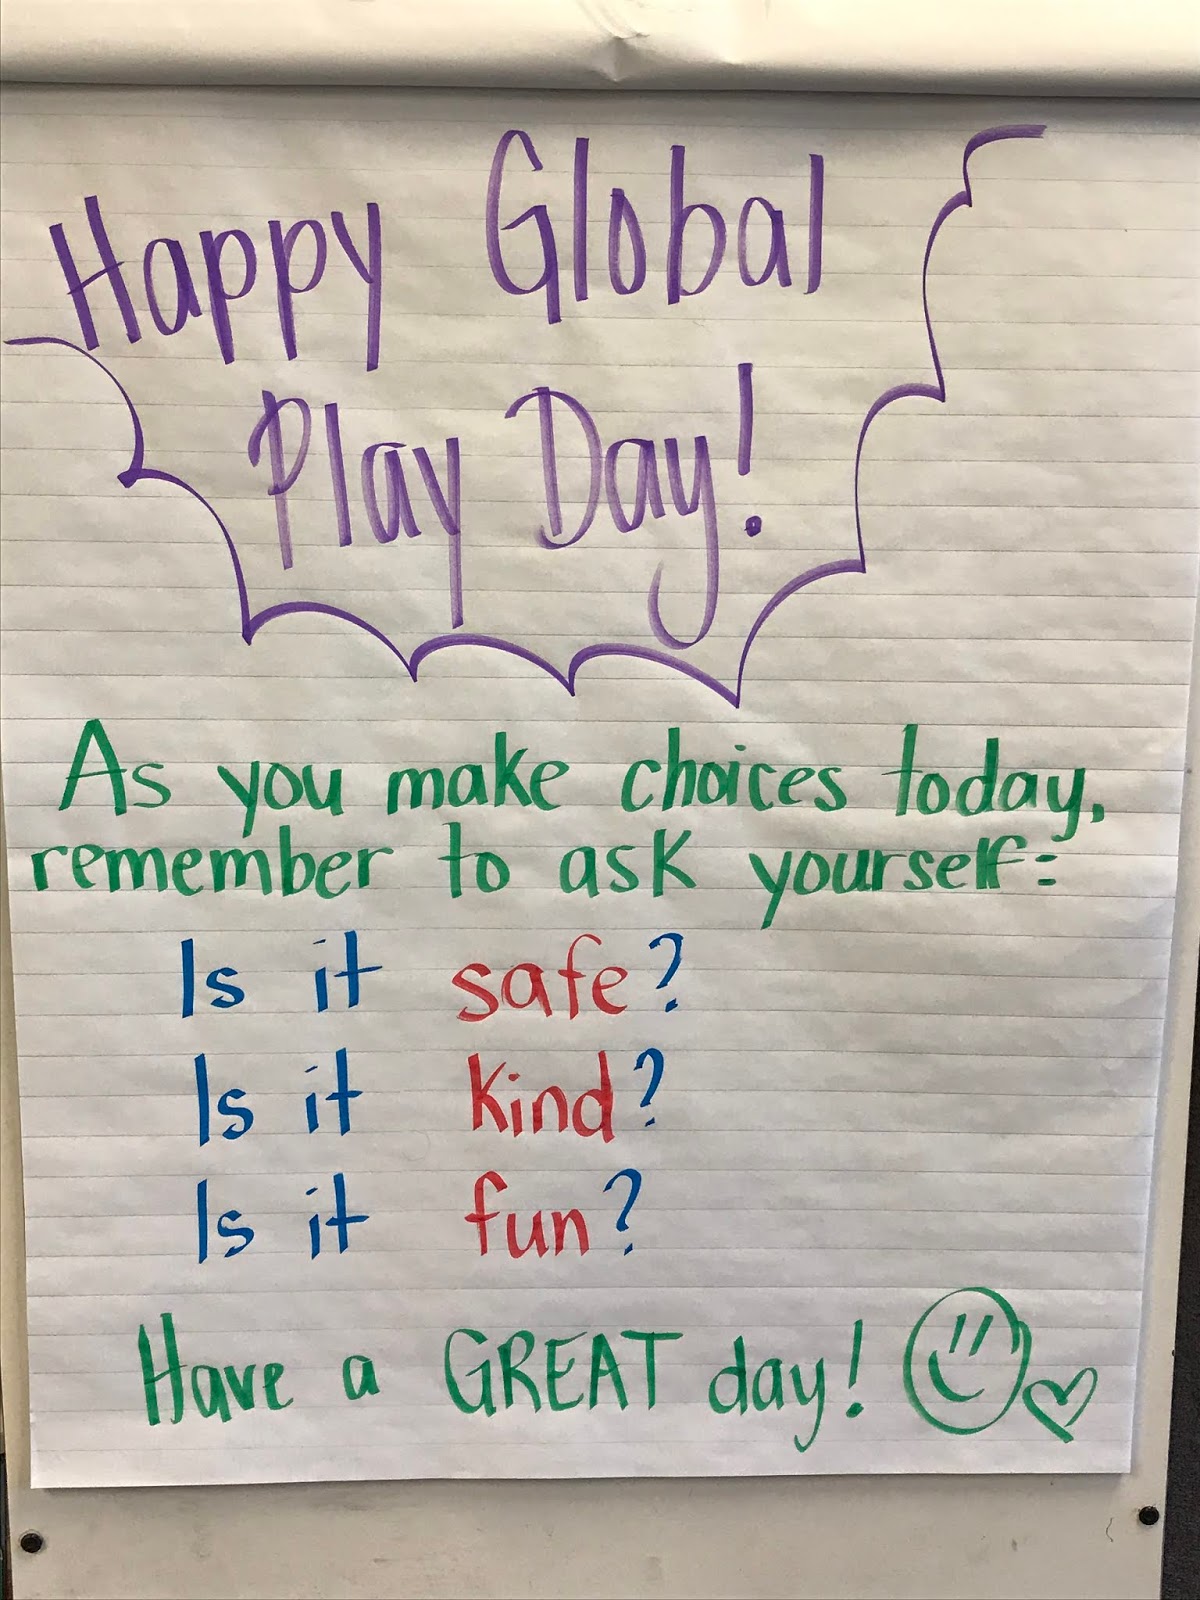 Happy Global
Play Day!
As you make choices today,
remember to ask yourself:
Is it safe?
Is it kind?
Is it fun?
Have a GREAT day!